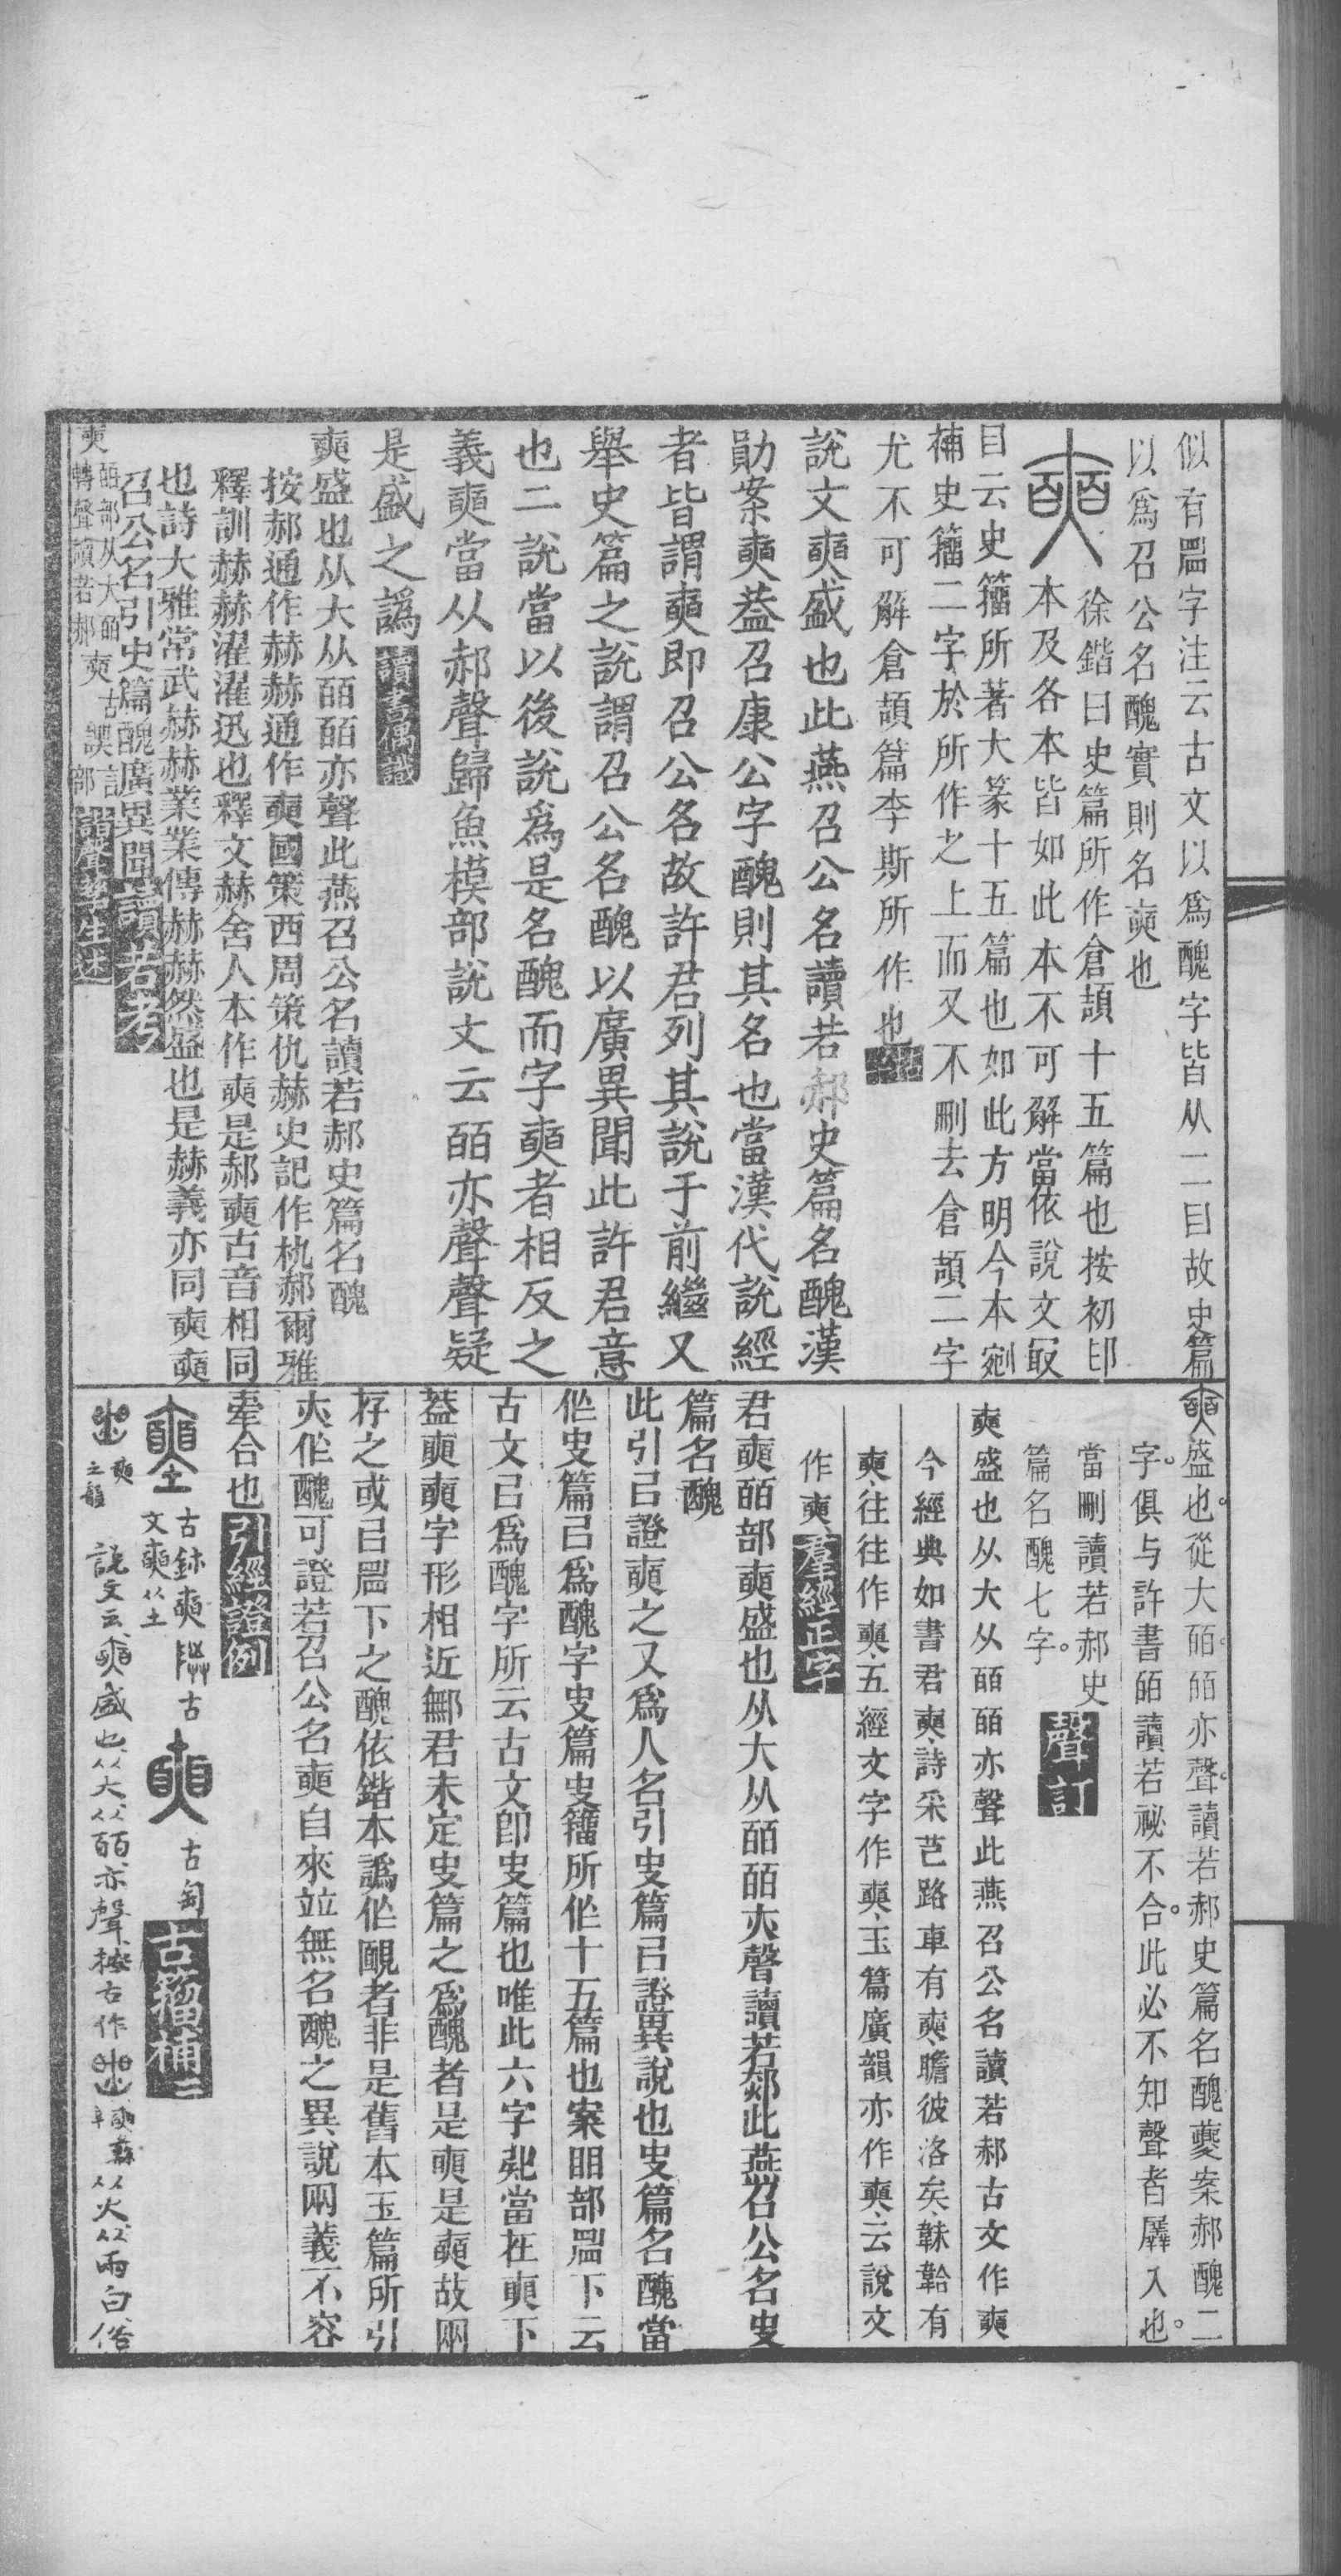 似有𥇛字注云古文以爲醜字皆从二目故史篇
以爲召公名醜實則名奭也
徐鍇曰史篇所作倉頡十五篇也按初印
本及各本皆如此本不可解當依說文㝡
目云史籒所著大篆十五篇也如此方明今本剜
補史籒二字於所作之上而又不刪去倉頡二字
尤不可解倉頡篇李斯所作也
說文奭盛也此燕召公名讀若郝史篇名醜漢
勛案奭葢召康公字醜則其名也當漢代說經
者皆謂奭即召公名故許君列其說于前繼又
舉史篇之說謂召公名醜以廣異聞此許君意
也二說當以後說爲是名醜而字奭者相反之
義奭當从郝聲歸魚模部說文云皕亦聲聲疑
是盛之譌讀書偶識
奭盛也从大从皕皕亦聲此燕召公名讀若郝史篇名醜
按郝通作赫赫通作奭國策西周策仇赫史記作机郝爾雅
釋訓赫赫濯濯迅也釋文赫舍人本作奭是郝奭古音相同
也詩大雅常武赫赫業業傳赫赫然盛也是赫義亦同奭奭
召公名引史篇醜廣異聞讀若考
奭皕部从大皕
轉聲讀若郝奭古
奭盛也從大皕皕亦聲讀若郝史篇名醜夔案郝醜二
字俱与許書皕讀若祕不合此必不知聲者羼入也
當刪讀若郝史
篇名醜七字聲訂
奭盛也从大从皕皕亦聲此燕召公名讀若郝古文作奭
今經典如書君奭詩采芑路車有奭瞻彼洛矣韎韐有
奭往往作奭五經文字作奭玉篇廣韻亦作奭云說文
作奭羣經正字
君奭皕部奭盛也从大从皕皕亦聲讀若郝此燕召公名㕜
篇名醜
此引㠯證奭之又爲人名引㕜篇㠯證異說也㕜篇名醜當
作㕜篇㠯爲醜字㕜篇㕜籒所作十五篇也案䀠部𥇛下云
古文㠯爲醜字所云古文卽㕜篇也唯此六字雖當在奭下
葢奭奭字形相近鄦君未定㕜篇之爲醜者是奭是奭故兩
存之或㠯𥇛下之醜依鍇本譌作䩄者非是舊本玉篇所引
亦作醜可證若召公名奭自來竝無名醜之異說兩義不容
牽合也引經證例
古鉥奭
文奭从土
古
古匋古籀補二
說文云奭盛也从大从皕亦聲